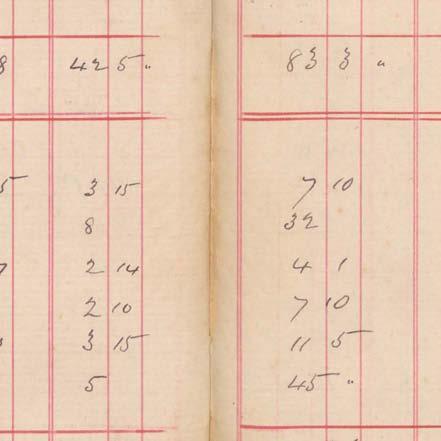 8 42 5 "
83 3 "
5 3 15
8
7 2 14
2 10
3 15
5
7 10
32
4 1
7 10
11 5
45 "